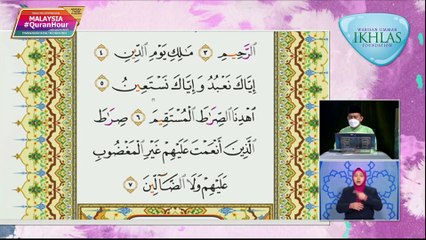 MALAYSIA
#QuranHour
WARISAN UMMAH
IKHLAS
FOUNDATION
ٱلرَّحِيمِ ٣ مَـٰلِكِ يَوْمِ ٱلدِّينِ ٤
إِيَّاكَ نَعْبُدُ وَإِيَّاكَ نَسْتَعِينُ ٥
ٱهْدِنَا ٱلصِّرَٰطَ ٱلْمُسْتَقِيمَ ٦ صِرَٰطَ
ٱلَّذِينَ أَنْعَمْتَ عَلَيْهِمْ غَيْرِ ٱلْمَغْضُوبِ
عَلَيْهِمْ وَلَا ٱلضَّآلِّينَ ٧